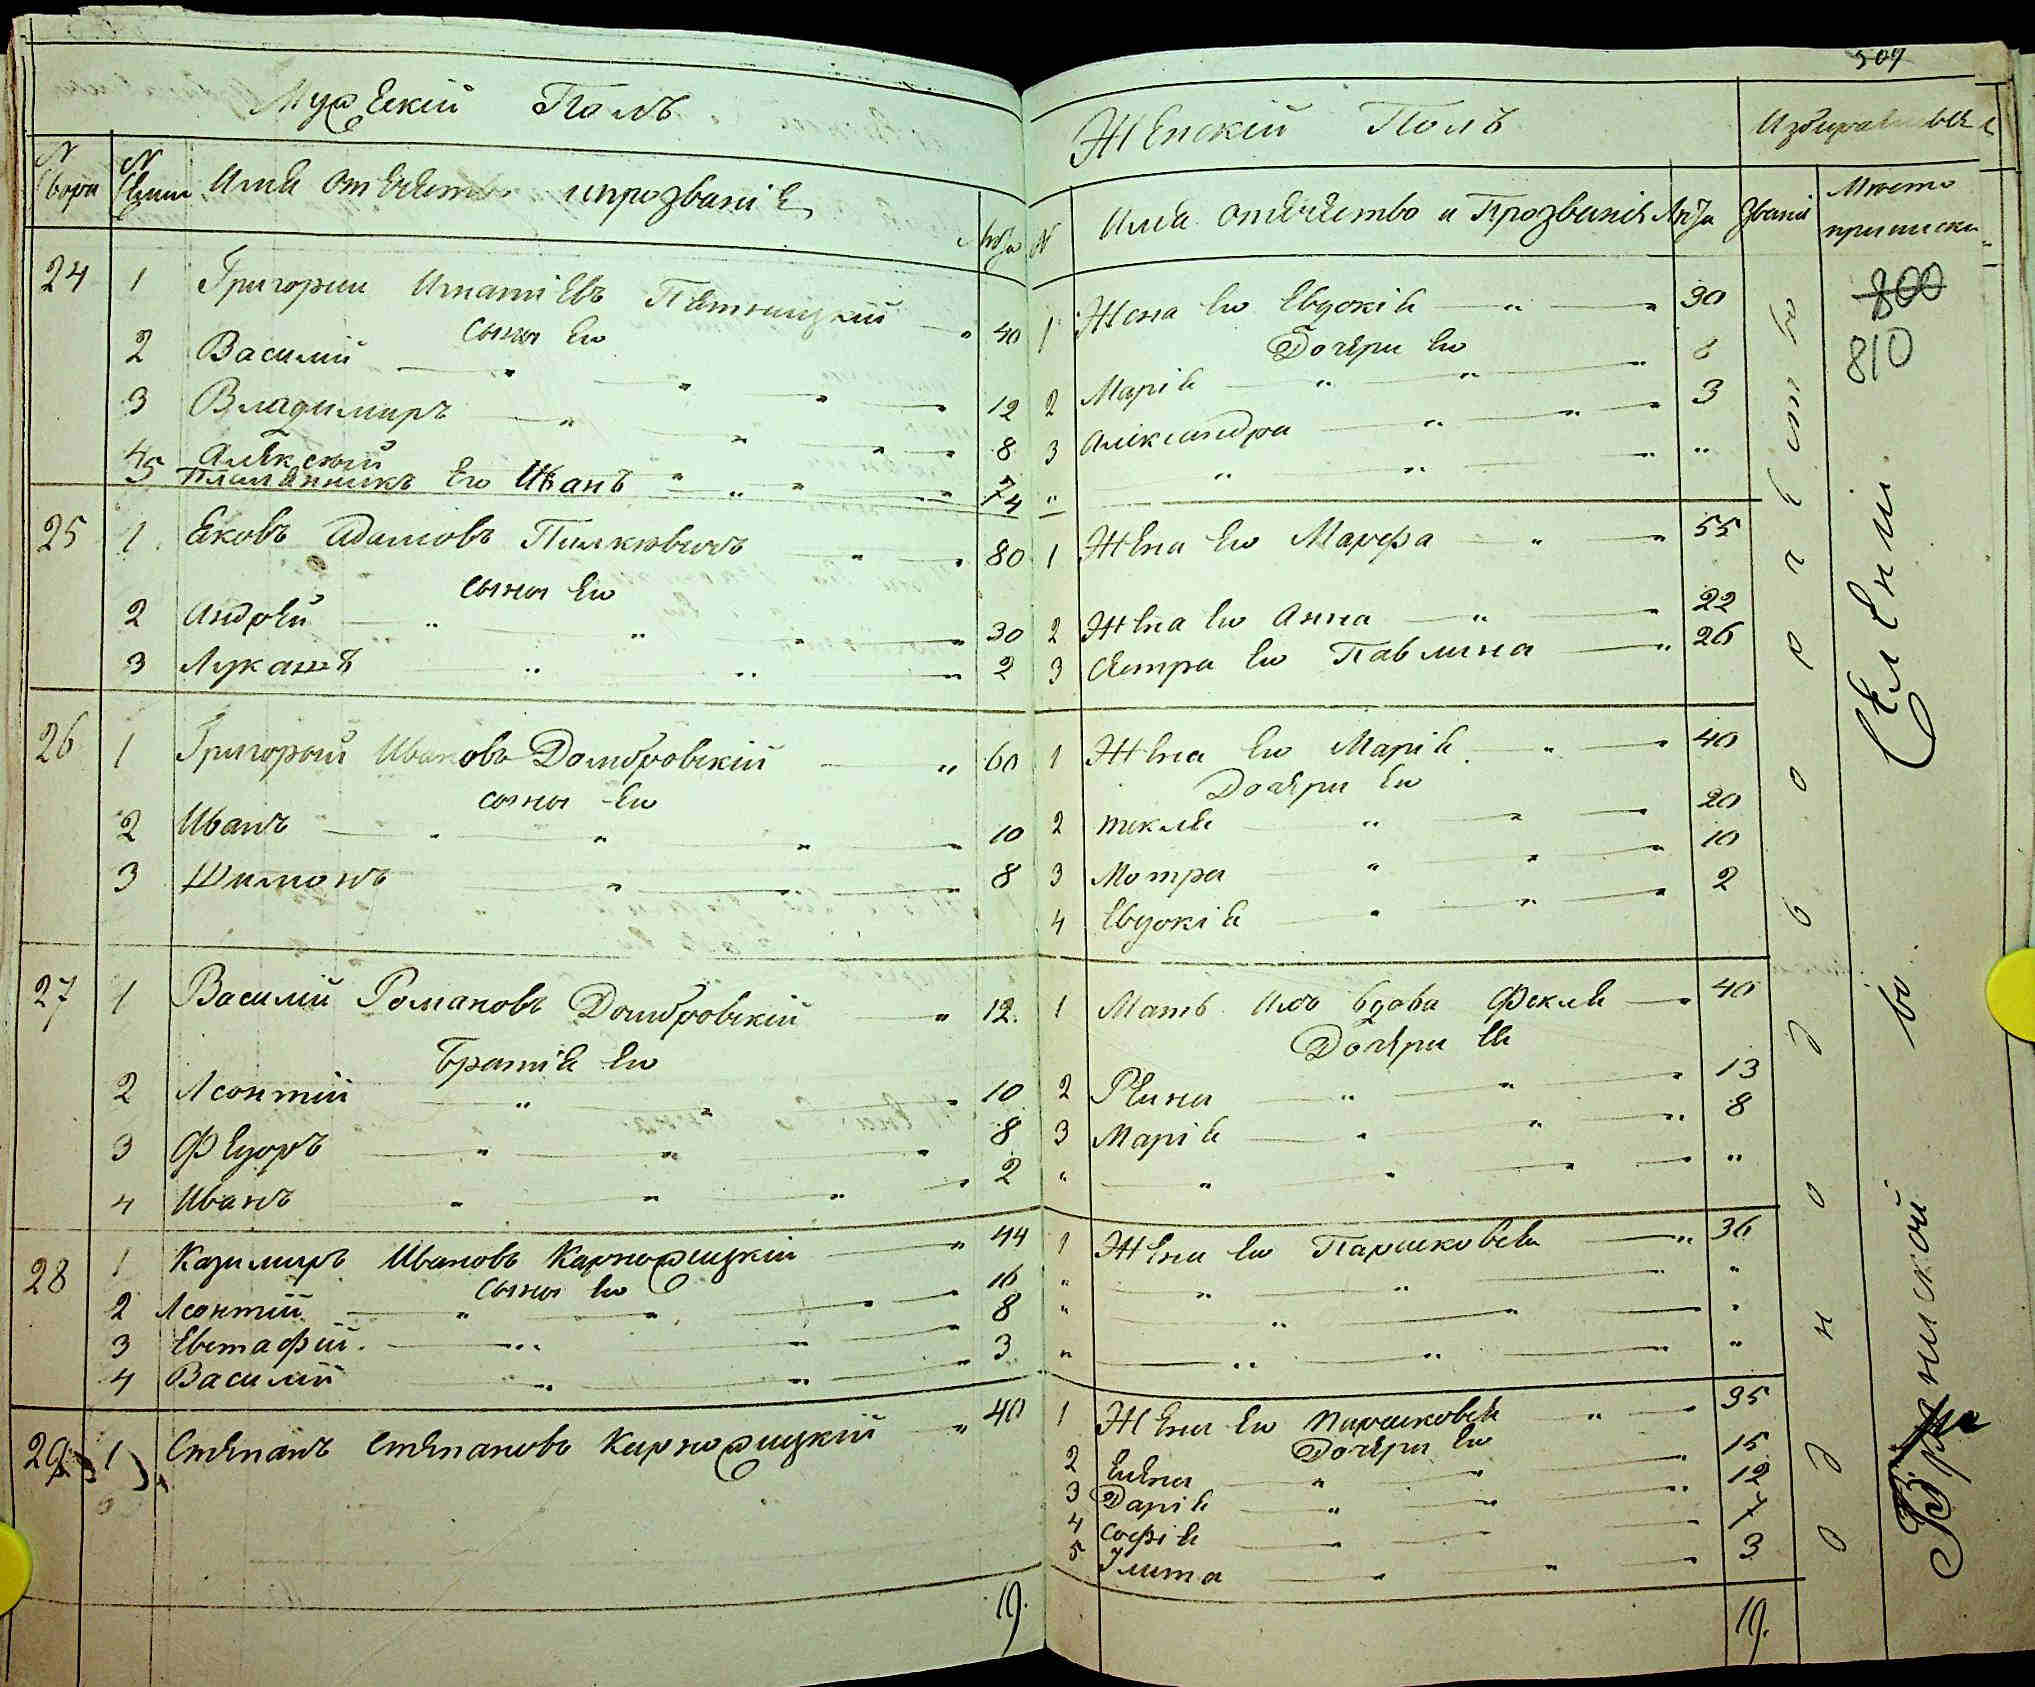 Мужескій Полъ
N двора
N семьи
Имя отечество и прозваніе
Лѣта
24 1 Григорій Игнатіевъ Петницкій 40
сыны его
2 Василій 12
3 Владимиръ 8
4 Алексѣй 7
5 Племянникъ его Иванъ 4
25 1 Яковъ Адамовъ 80
сыны его
2 Андрей 30
3 Лукашъ 2
26 1 Григорій Ивановъ Домбровскій 60
сыны его
2 Иванъ 10
3 Шимонъ 8
27 1 Василій Романовъ Домбровскій 12.
братія его
2 Леонтій 10
3 Федоръ 8
4 Иванъ 2
28 1 Казимиръ Ивановъ Карножицкій 44
сыны его
2 Леонтій 16
3 Евстафій 8
4 Василій 3
29 1 Степанъ Степановъ Карножицкій 40
19.
509
Женскій Полъ
N
Имя отечество и Прозваніе
Лѣта
Званія
Мѣсто приписки
1 Жена его Евдокія 30
Дочери его
2 Марія 6
3 Александра 3
1 Жена его Марфа 55
2 Жена его Анна 22
3 Сестра его Павлина 26
1 Жена его Марія 40
Дочери его
2 Текля 20
3 Мотра 10
4 Евдокія 2
1 Мать ихъ вдова Фекля 40
Дочери ея
2 Реина 13
3 Марія 8
1 Жена его Парасковея 36
1 Жена его Парасковея 35
Дочери его
2 Елена 15
3 Дарія 12
4 Софія 7
5 Улита 3
19.
800
810
однодворство
во Селеніи